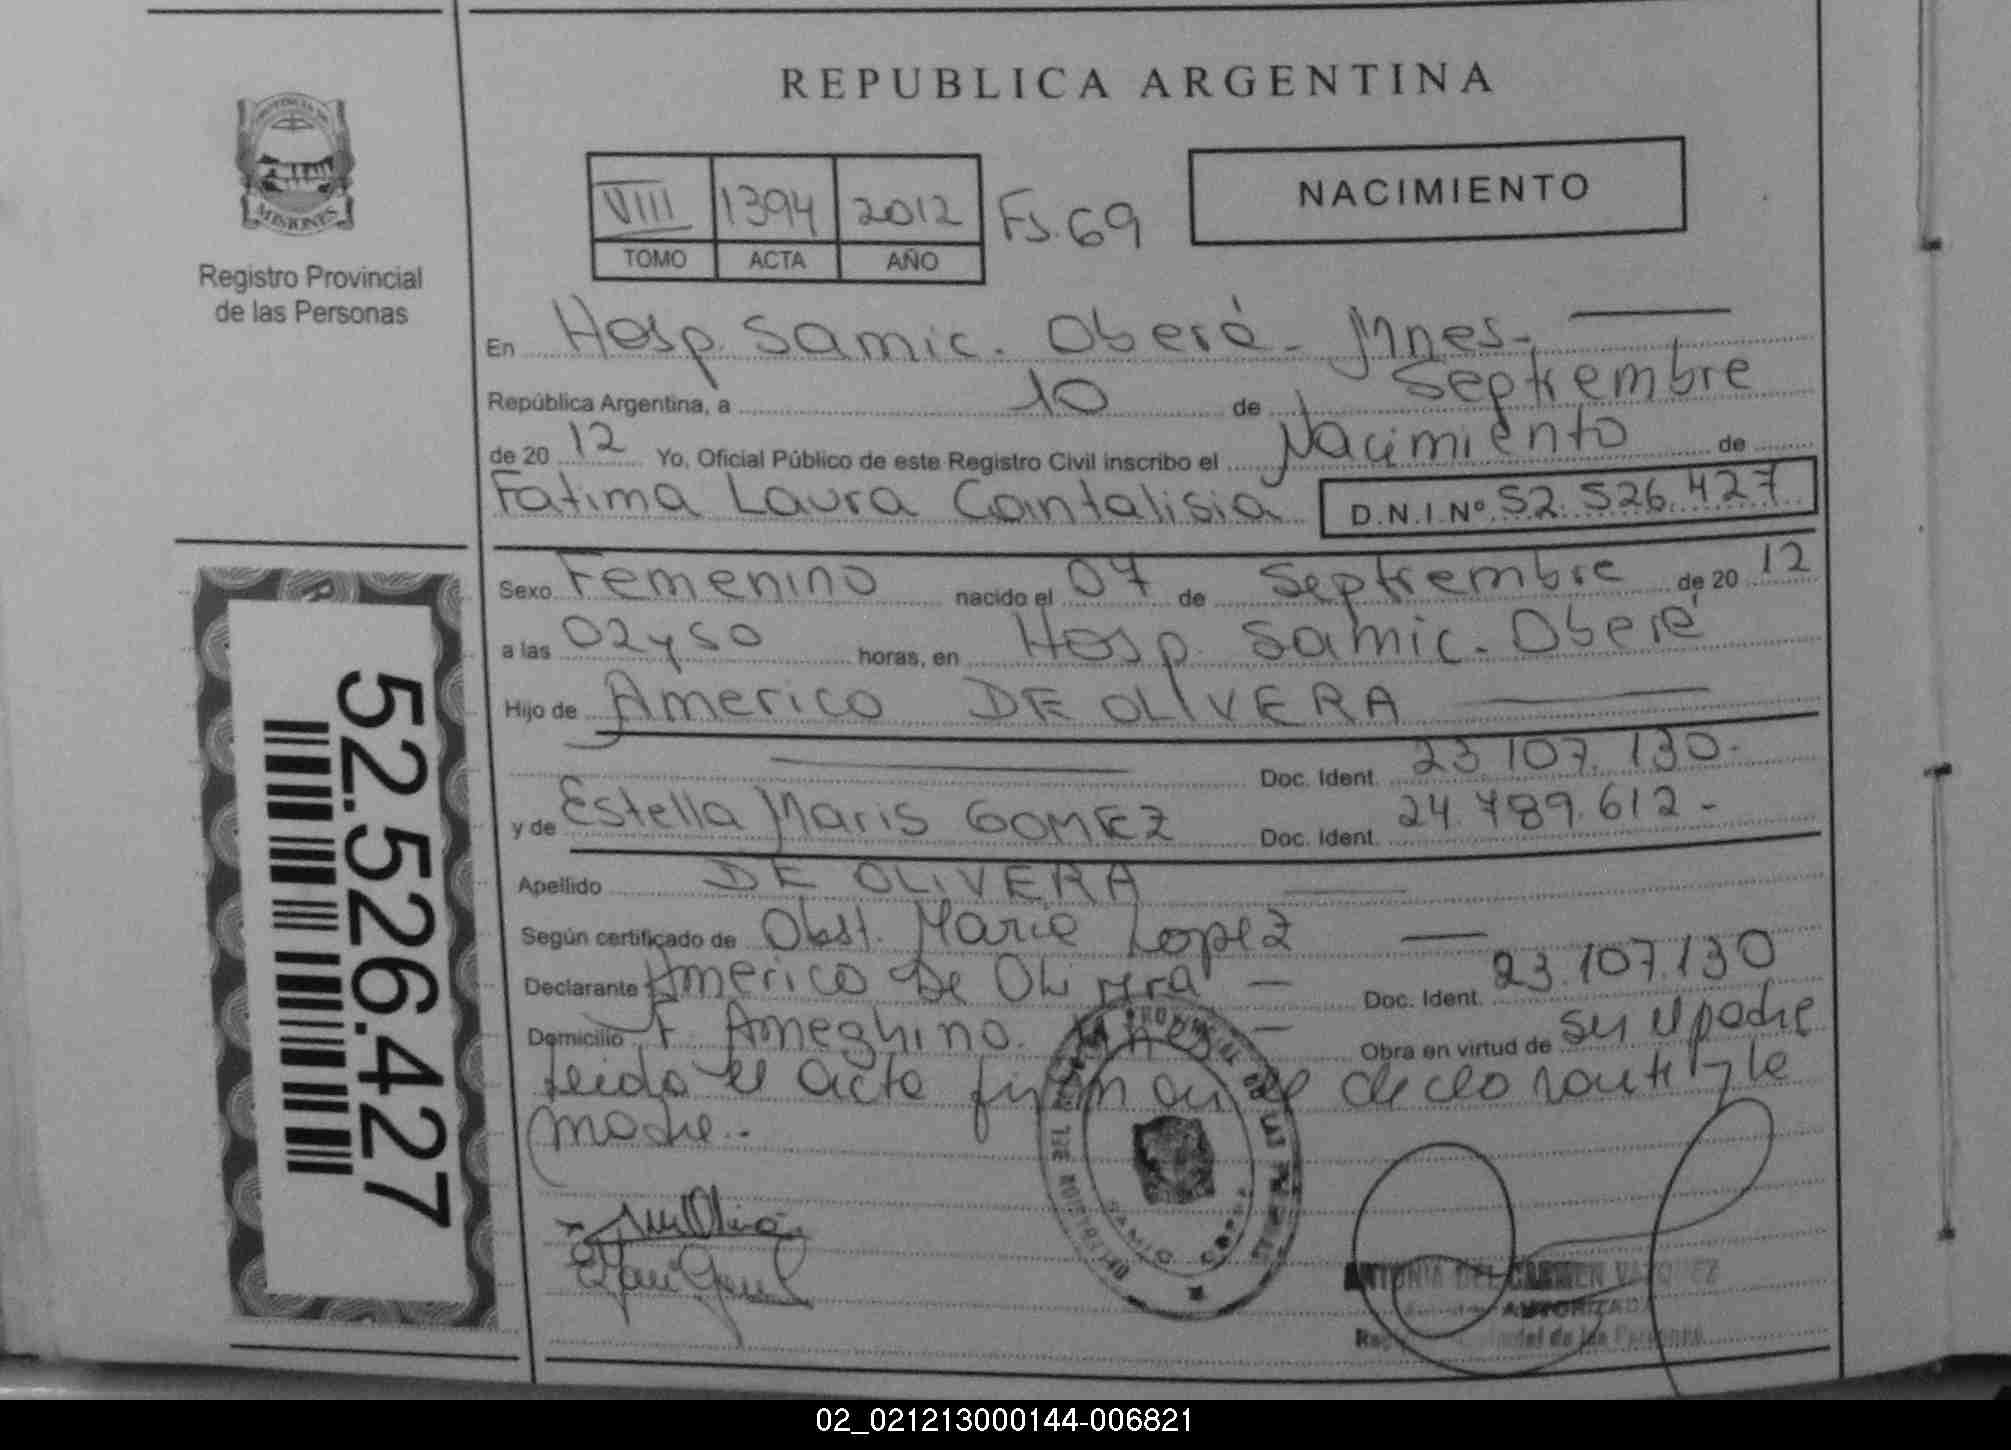 REPUBLICA ARGENTINA
PROVINCIA DE
MISIONES
Registro Provincial
de las Personas
VIII 1394 2012 Fs. 69
TOMO ACTA AÑO
NACIMIENTO
En Hosp. Samic. Oberá - Mnes -
República Argentina, a 10 de Septiembre
de 20 12 Yo, Oficial Público de este Registro Civil inscribo el Nacimiento de
Fatima Laura Cantalisia D.N.I.Nº 52.526.427
Sexo Femenino nacido el 07 de Septiembre de 20 12
a las 02 y 50 horas, en Hosp. Samic. Oberá
Hijo de Americo DE OLIVERA
Doc. Ident. 23.107.130-
y de Estella Maris GOMEZ Doc. Ident. 24.789.612-
Apellido DE OLIVERA
Según certificado de Obst. Maria Lopez
Declarante Americo De Olivera Doc. Ident. 23.107.130
Domicilio F. Ameghino. Mnes Obra en virtud de ser el padre
Leida el acta firman el declarante y la
madre.-
52.526.427
SAMIC OBERA
ANTONIA DEL CARMEN VAZQUEZ
AUTORIZADA
de las Personas
02_021213000144-006821